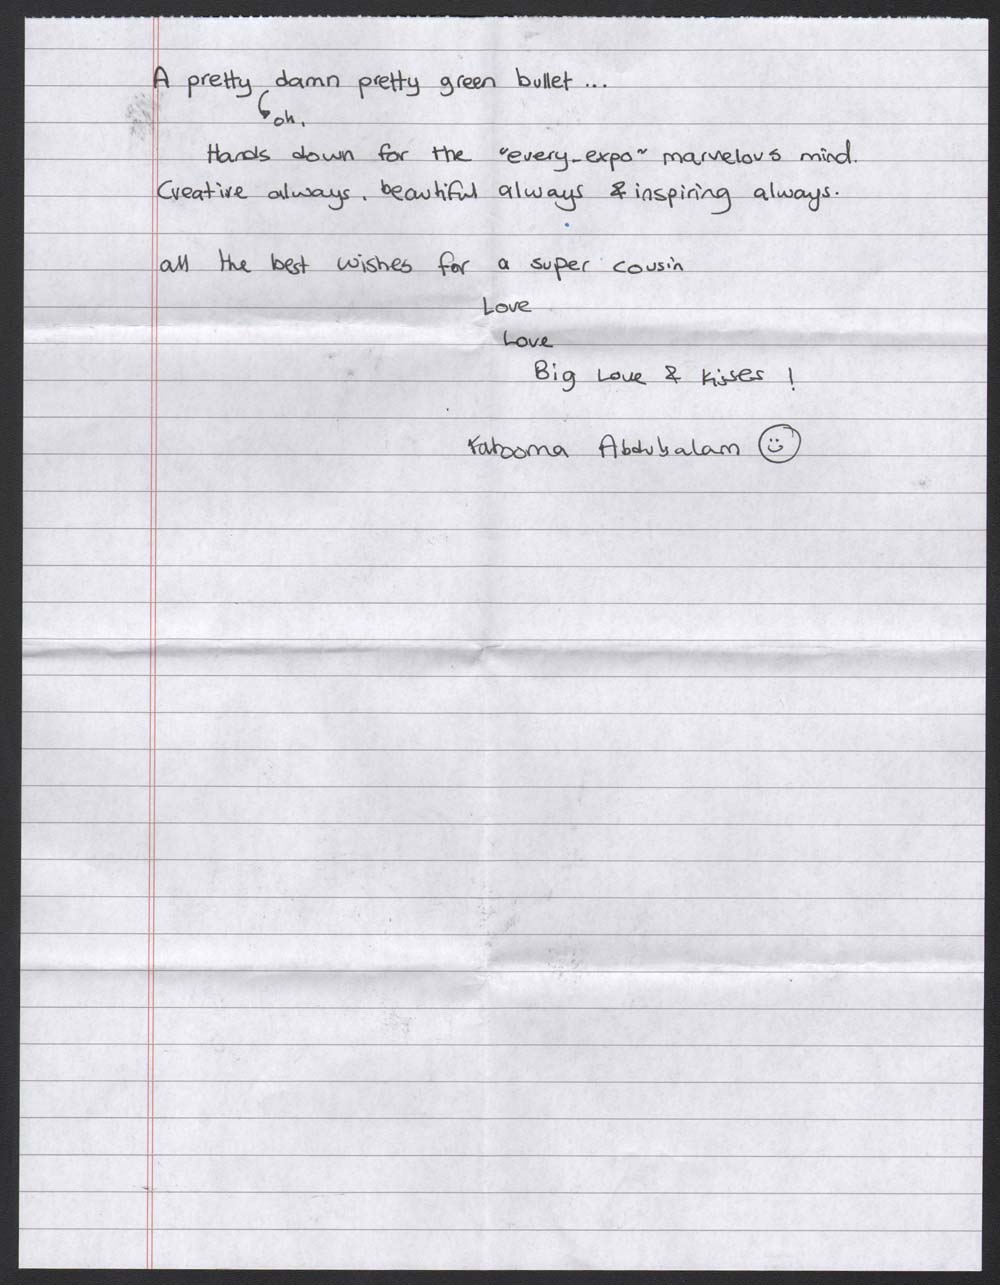 A pretty damn pretty green bullet ...
oh.
Hands down for the "every-expo" marvelous mind.
Creative always, beautiful always & inspiring always.
all the best wishes for a super cousin
Love
Love
Big Love & kisses !
Abdulsalam